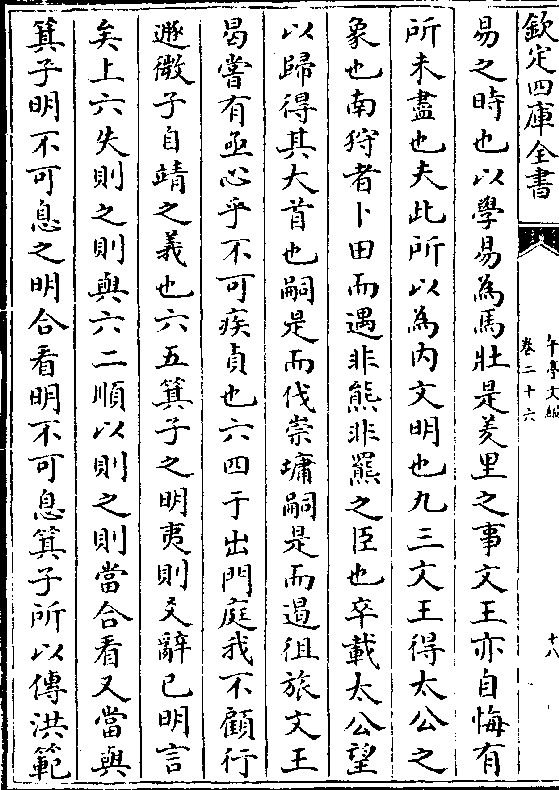 欽定四庫全書
午亭文編
卷二十六
十八
易之時也以學易為馬壯是羑里之事文王亦自悔有
所未盡也夫此所以為內文明也九三文王得太公之
象也南狩者卜田而遇非熊非羆之臣也卒載太公望
以歸得其大首也嗣是而伐崇墉嗣是而遏徂旅文王
曷嘗有亟心乎不可疾貞也六四于出門庭我不顧行
遯微子自靖之義也六五箕子之明夷則爻辭已明言
矣上六失則之則與六二順以則之則當合看又當與
箕子明不可息之明合看明不可息箕子所以傳洪範